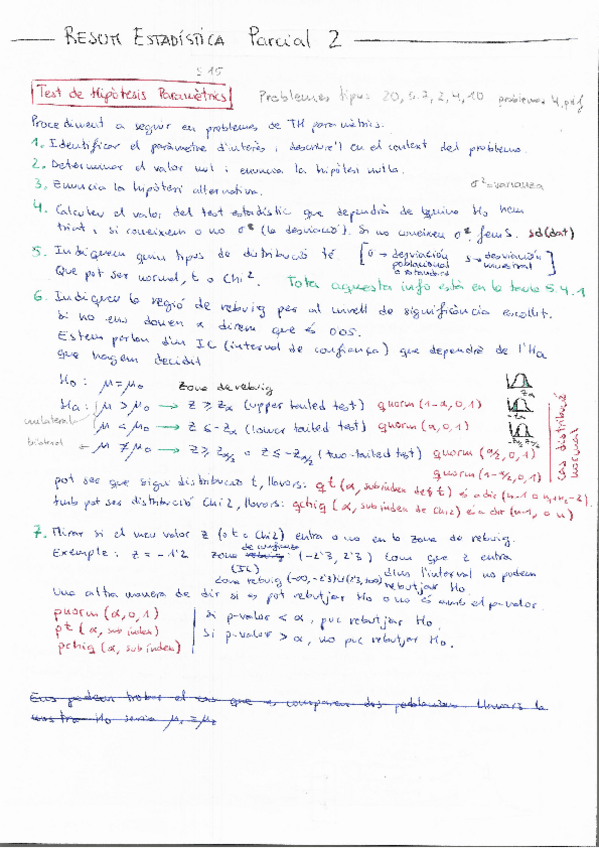 RESUM ESTADÍSTICA Parcial 2
5.15
Test de Hipòtesis Paramètrics Problemes tipus 20, 5.7, 2, 4, 10 problemes 4.pdf
Procediment a seguir en problemes de TH paramètrics.
1. Identificar el paràmetre d'interès i descriure'l en el context del problema.
2. Determinar el valor nul i enuncia la hipòtesi nul·la.
3. Enuncia la hipòtesi alternativa. σ² = varianza
4. Calculeu el valor del test estadístic que dependrà de quina H₀ hem
triat, i si coneixem o no σ² (la desviació). Si no coneixem σ², fem S. sd(dat)
5. Indiquem quin tipus de distribució té. [σ → desviación poblacional o estandard s → desviación muestral]
Que pot ser normal, t o Chi². Tota aquesta info està en la taula 5.4.1
6. Indiqueu la regió de rebuig per al nivell de significància escollit.
Si no ens donen α direm que és 0'05.
Estem parlant d'un IC (interval de confiança) que dependrà de l'Ha
que hagem decidit
H₀: μ = μ₀ Zona de rebuig
Ha: μ > μ₀ → z ≥ zα (upper tailed test) qnorm (1-α, 0, 1)
unilateral μ < μ₀ → z ≤ -zα (lower tailed test) qnorm (α, 0, 1)
bilateral μ ≠ μ₀ → z ≥ zα/2 o z ≤ -zα/2 (two-tailed test) qnorm (α/2, 0, 1)
qnorm (1-α/2, 0, 1)
cas distribució normal
pot ser que sigui distribució t, llavors: qt (α, subíndex de t) és a dir (n-1 o n₁+n₂-2)
també pot ser distribució Chi2, llavors: qchisq (α, subíndex de Chi2) és a dir (n-1, o n)
7. Mirar si el meu valor z (o t o Chi2) entra o no en la zona de rebuig.
Exemple: z = -1'2 zona rebuig de confiança (IC): (-2'3, 2'3) Com que z entra
dins l'interval no podem
zona rebuig (-∞, -2'3)∪(2'3, ∞) rebutjar H₀.
Una altra manera de dir si es pot rebutjar H₀ o no és amb el p-valor.
pnorm (α, 0, 1) Si p-valor < α, puc rebutjar H₀.
pt (α, subíndex) Si p-valor > α, no puc rebutjar H₀.
pchisq (α, subíndex)
Ens podem trobar el cas que es comparen dos poblacions. Llavors la
nostra H₀ seria μ₁ = μ₂